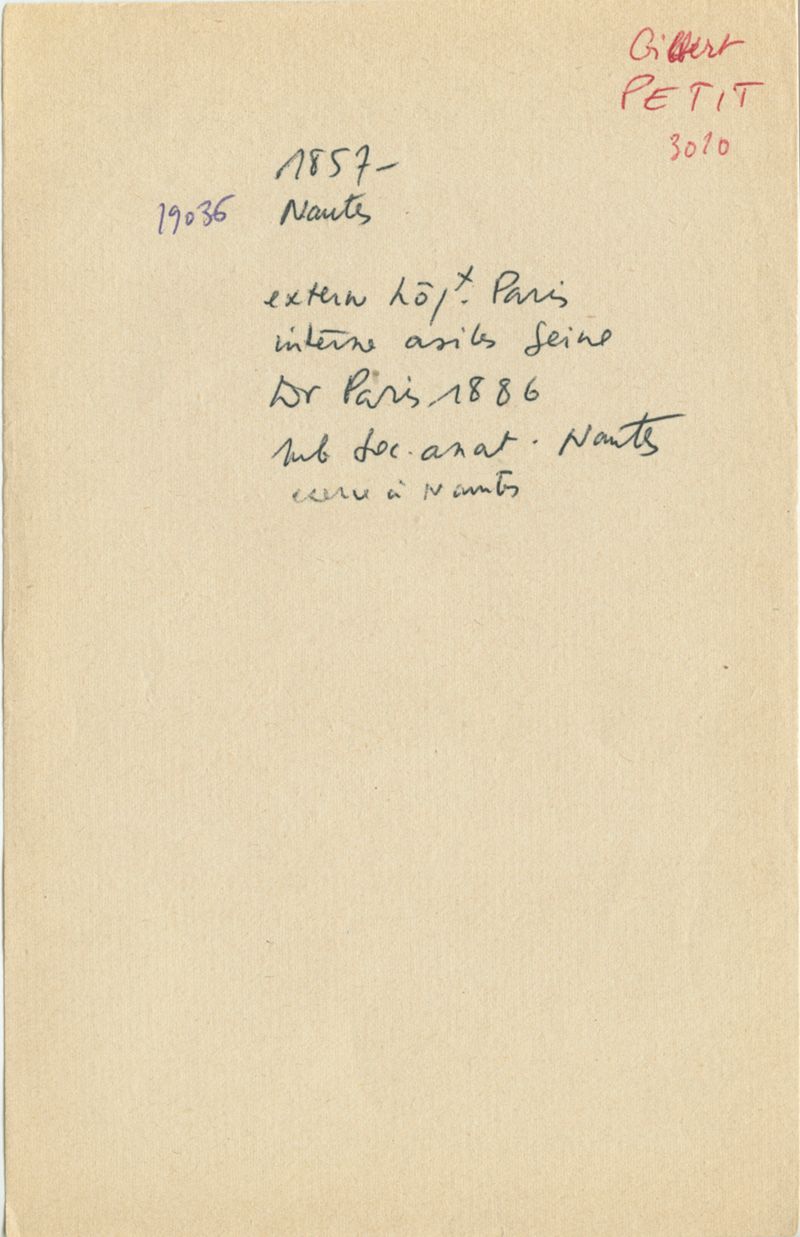 Gilbert
PETIT
3010
1857-
19036 Nantes
externe hôpx. Paris
interne asiles Seine
Dr Paris 1886
mb Soc. anat. Nantes
exerce à Nantes